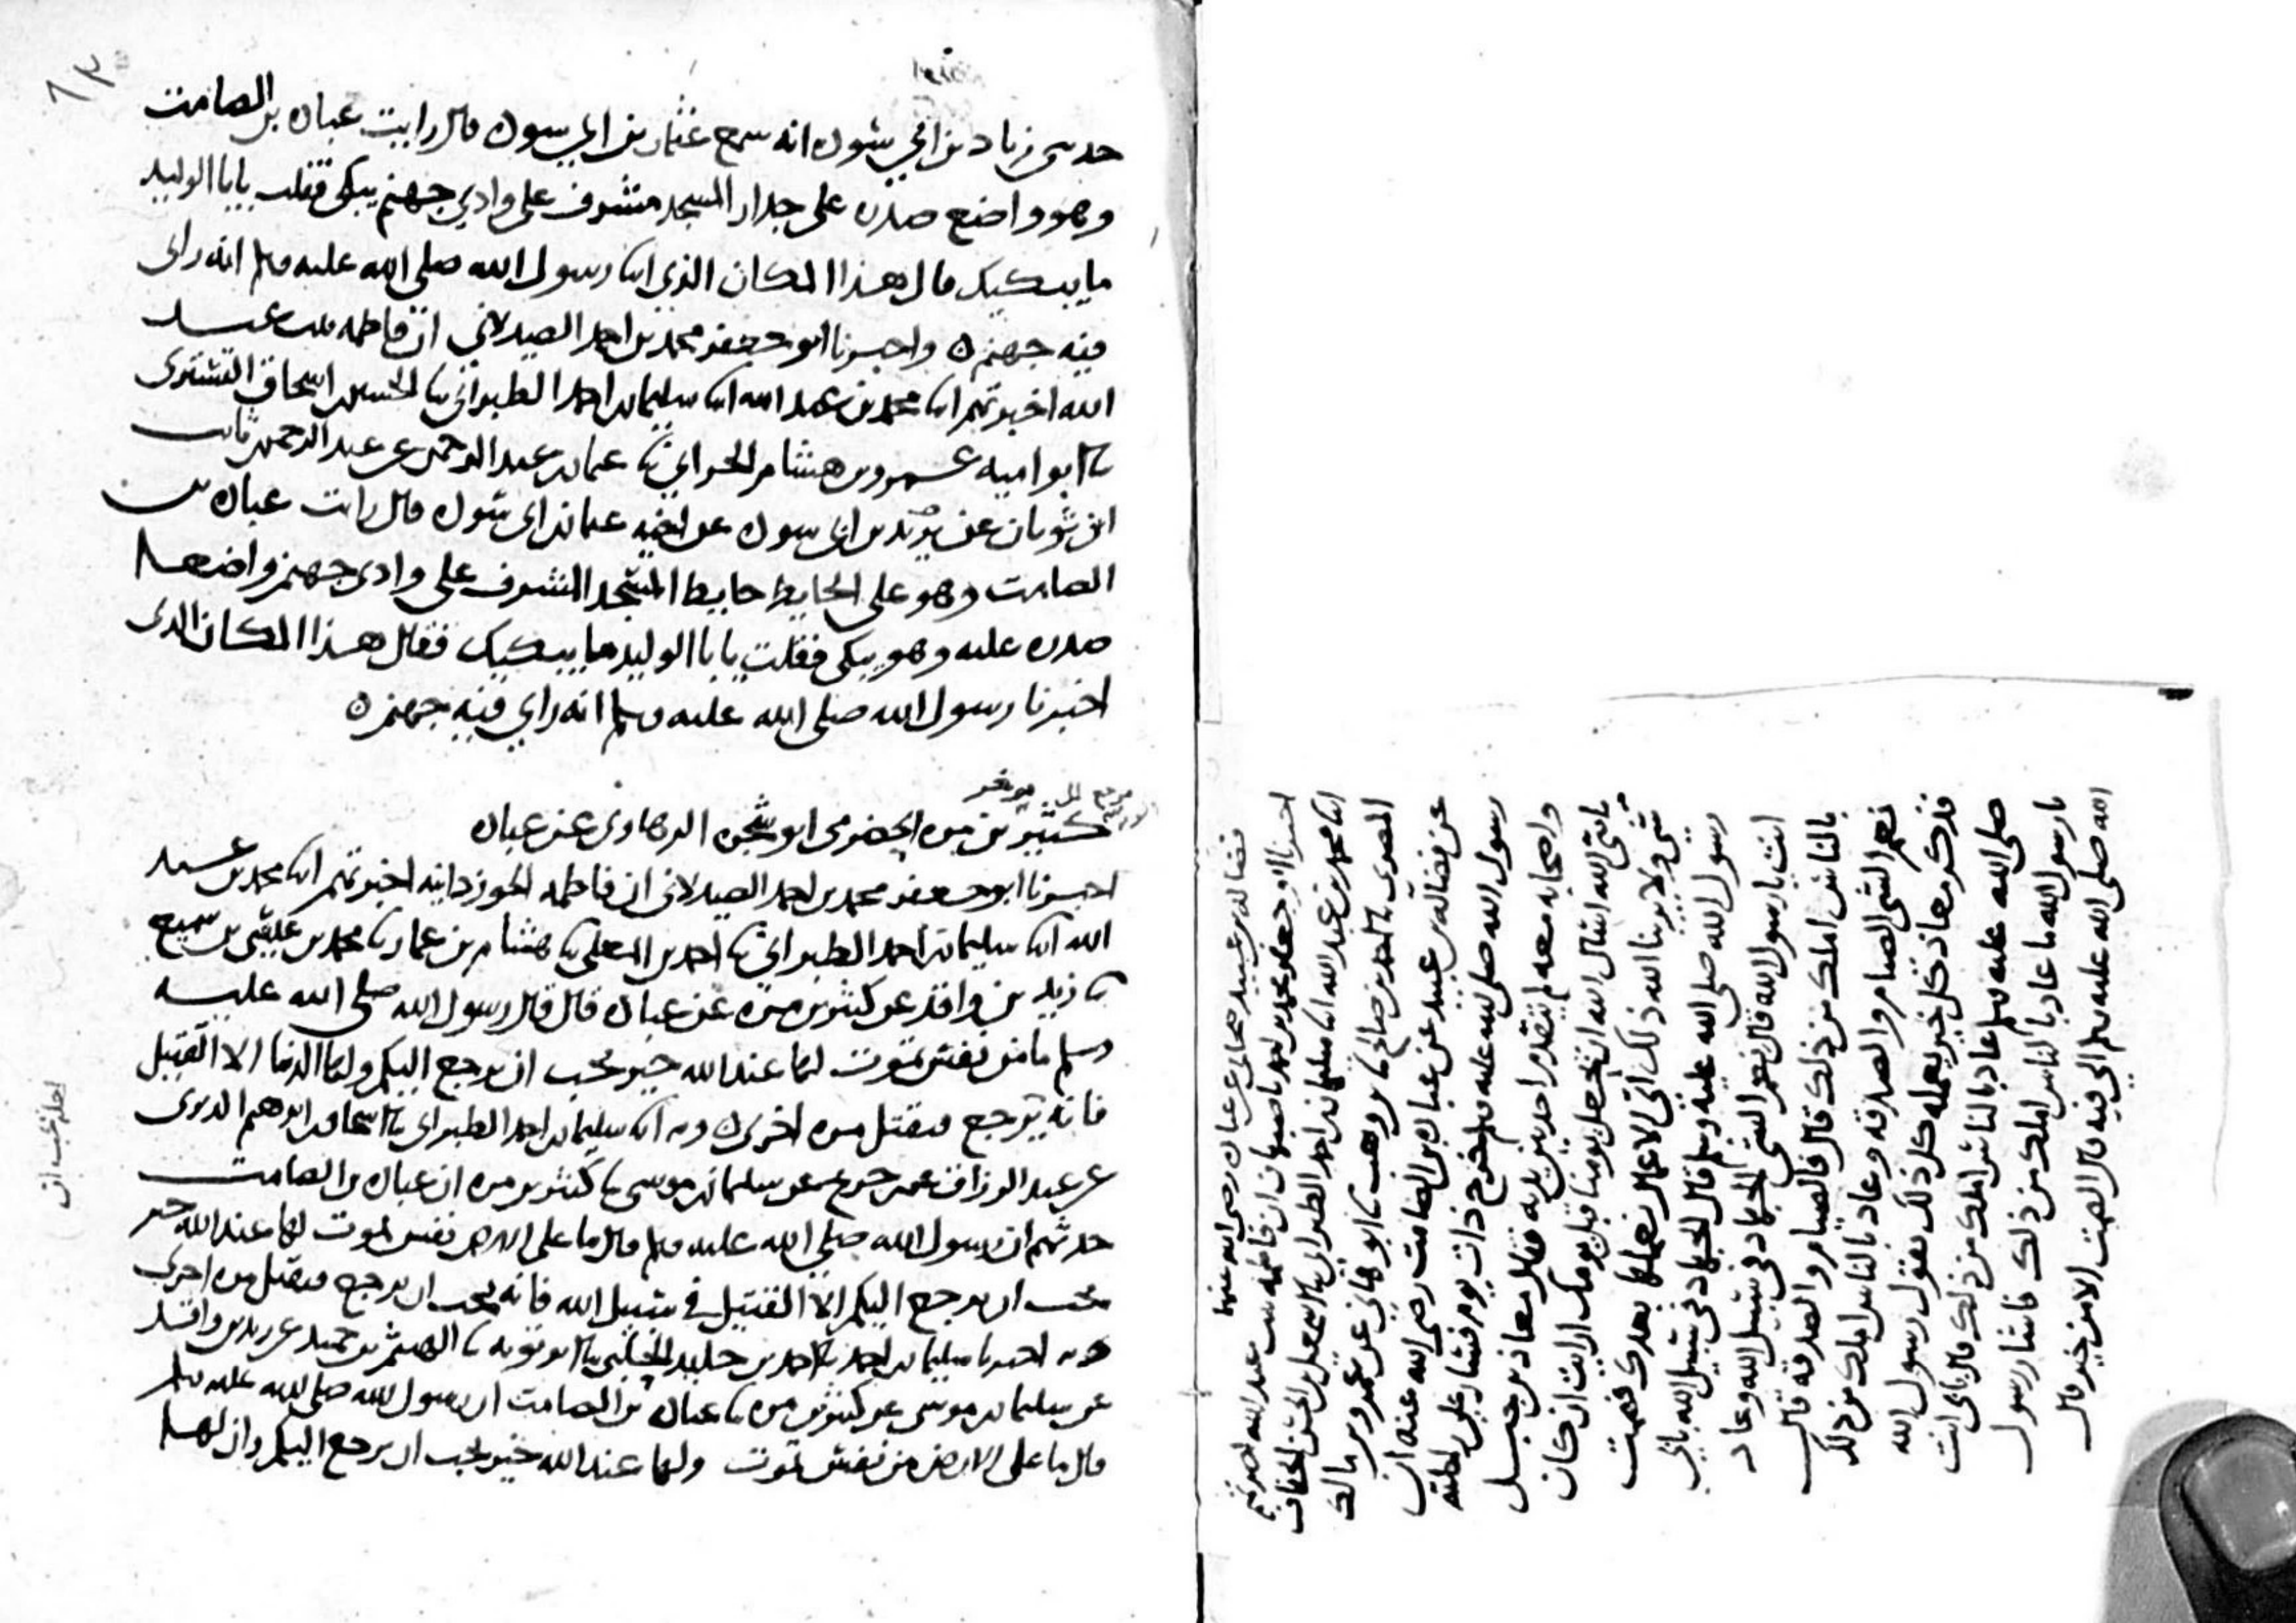 حدثني زياد بن ابي سوده انه سمع عثمان بن ابي سوده قال رايت عباده بن الصامت
وهو واضع صدره على جدار المسجد مشرف على وادي جهنم يبكي فقلت يابا الوليد
ما يبكيك قال هذا المكان الذي انا رسول الله صلى الله عليه وسلم انه راى
فيه جهنم ه واخبرنا ابو جعفر محمد بن احمد الصيدلاني ان فاطمه بنت عبد
الله اخبرتهم انا محمد بن عبد الله انا سليمان بن احمد الطبراني نا الحسين بن اسحاق التستري
نا ابو اميه عمرو بن هشام الحراني نا عثمان بن عبد الرحمن عن عبد الرحمن بن ثابت
ابن ثوبان عن يزيد بن ابي سوده عن اخيه عثمان بن ابي سوده قال رايت عباده بن
الصامت وهو على الحايط حايط المسجد المشرف على وادي جهنم واضعا
صدره عليه وهو يبكي فقلت يابا الوليد ما يبكيك فقال هذا المكان الذي
اخبرنا رسول الله صلى الله عليه وسلم انه راي فيه جهنم ه
كثير بن مره الحضرمي ابو شجره الرهاوي عن عباده
اخبرنا ابو جعفر محمد بن احمد الصيدلاني ان فاطمه الجوزدانيه اخبرتهم انا محمد بن عبد
الله انا سليمان بن احمد الطبراني نا احمد بن المعلى نا هشام بن عمار نا محمد بن عيسى بن سميع
نا زيد بن واقد عن كثير بن مره عن عباده قال قال رسول الله صلى الله عليه
وسلم ما من نفس تموت لها عند الله خير تحب ان ترجع اليكم ولها الدنيا الا القتيل
فانه يرجع فيقتل مره اخرى ه وبه انا سليمان بن احمد الطبراني نا اسحاق بن ابرهيم الدبري
عن عبد الرزاق عن ابن جريج عن سليمان بن موسى نا كثير بن مره ان عباده بن الصامت
حدثهم ان رسول الله صلى الله عليه وسلم قال ما على الارض نفس تموت لها عند الله خير
تحب ان ترجع اليكم الا القتيل في سبيل الله فانه يحب ان يرجع فيقتل مره اخرى
وبه اخبرنا سليمان بن احمد نا احمد بن خليد الحلبي نا ابو توبه نا الهيثم بن حميد عن زيد بن واقد
عن سليمان بن موسى عن كثير بن مره نا عباده بن الصامت ان رسول الله صلى الله عليه وسلم
قال ما على الارض من نفس تموت ولها عند الله خير تحب ان ترجع اليكم وان لها
فضاله بن عبيد صحابي عن عباده رضي الله عنهما
اخبرنا ابو جعفر محمد بن احمد باصبهان ان فاطمه بنت عبد الله اخبرتهم
انا محمد بن عبد الله انا سليمان بن احمد الطبراني نا اسمعيل بن الحسن الخفاف
المصري نا احمد بن صالح نا بن وهب نا ابو هاني عن عمرو بن مالك
عن فضاله بن عبيد عن عباده بن الصامت رضي الله عنه ان
رسول الله صلى الله عليه وسلم خرج ذات يوم فسار على راحلته
واصحابه معه لم يتقدم احد بين يديه فقال معاذ بن جبل
يا نبي الله اسال الله ان يجعل يومنا قبل يومك ارايت ان كان
شي ولا يرينا الله ذلك اي الاعمال نعملها بعدك فصمت
رسول الله صلى الله عليه وسلم قال الجهاد في سبيل الله بابي
انت يا رسول الله قال نعم الشي الجهاد في سبيل الله وعاد
بالناس املك من ذلك قال فالصيام والصدقه قال
نعم الشي الصيام والصدقه وعاد بالناس املك من ذلك
فذكر معاذ كل خير يعمله كل ذلك يقول رسول الله
صلى الله عليه وسلم عاد بالناس املك من ذلك قال بابي انت
يا رسول الله ما عاد بالناس املك من ذلك فاشار رسول
الله صلى الله عليه وسلم الى فيه قال الصمت الا من خير قال